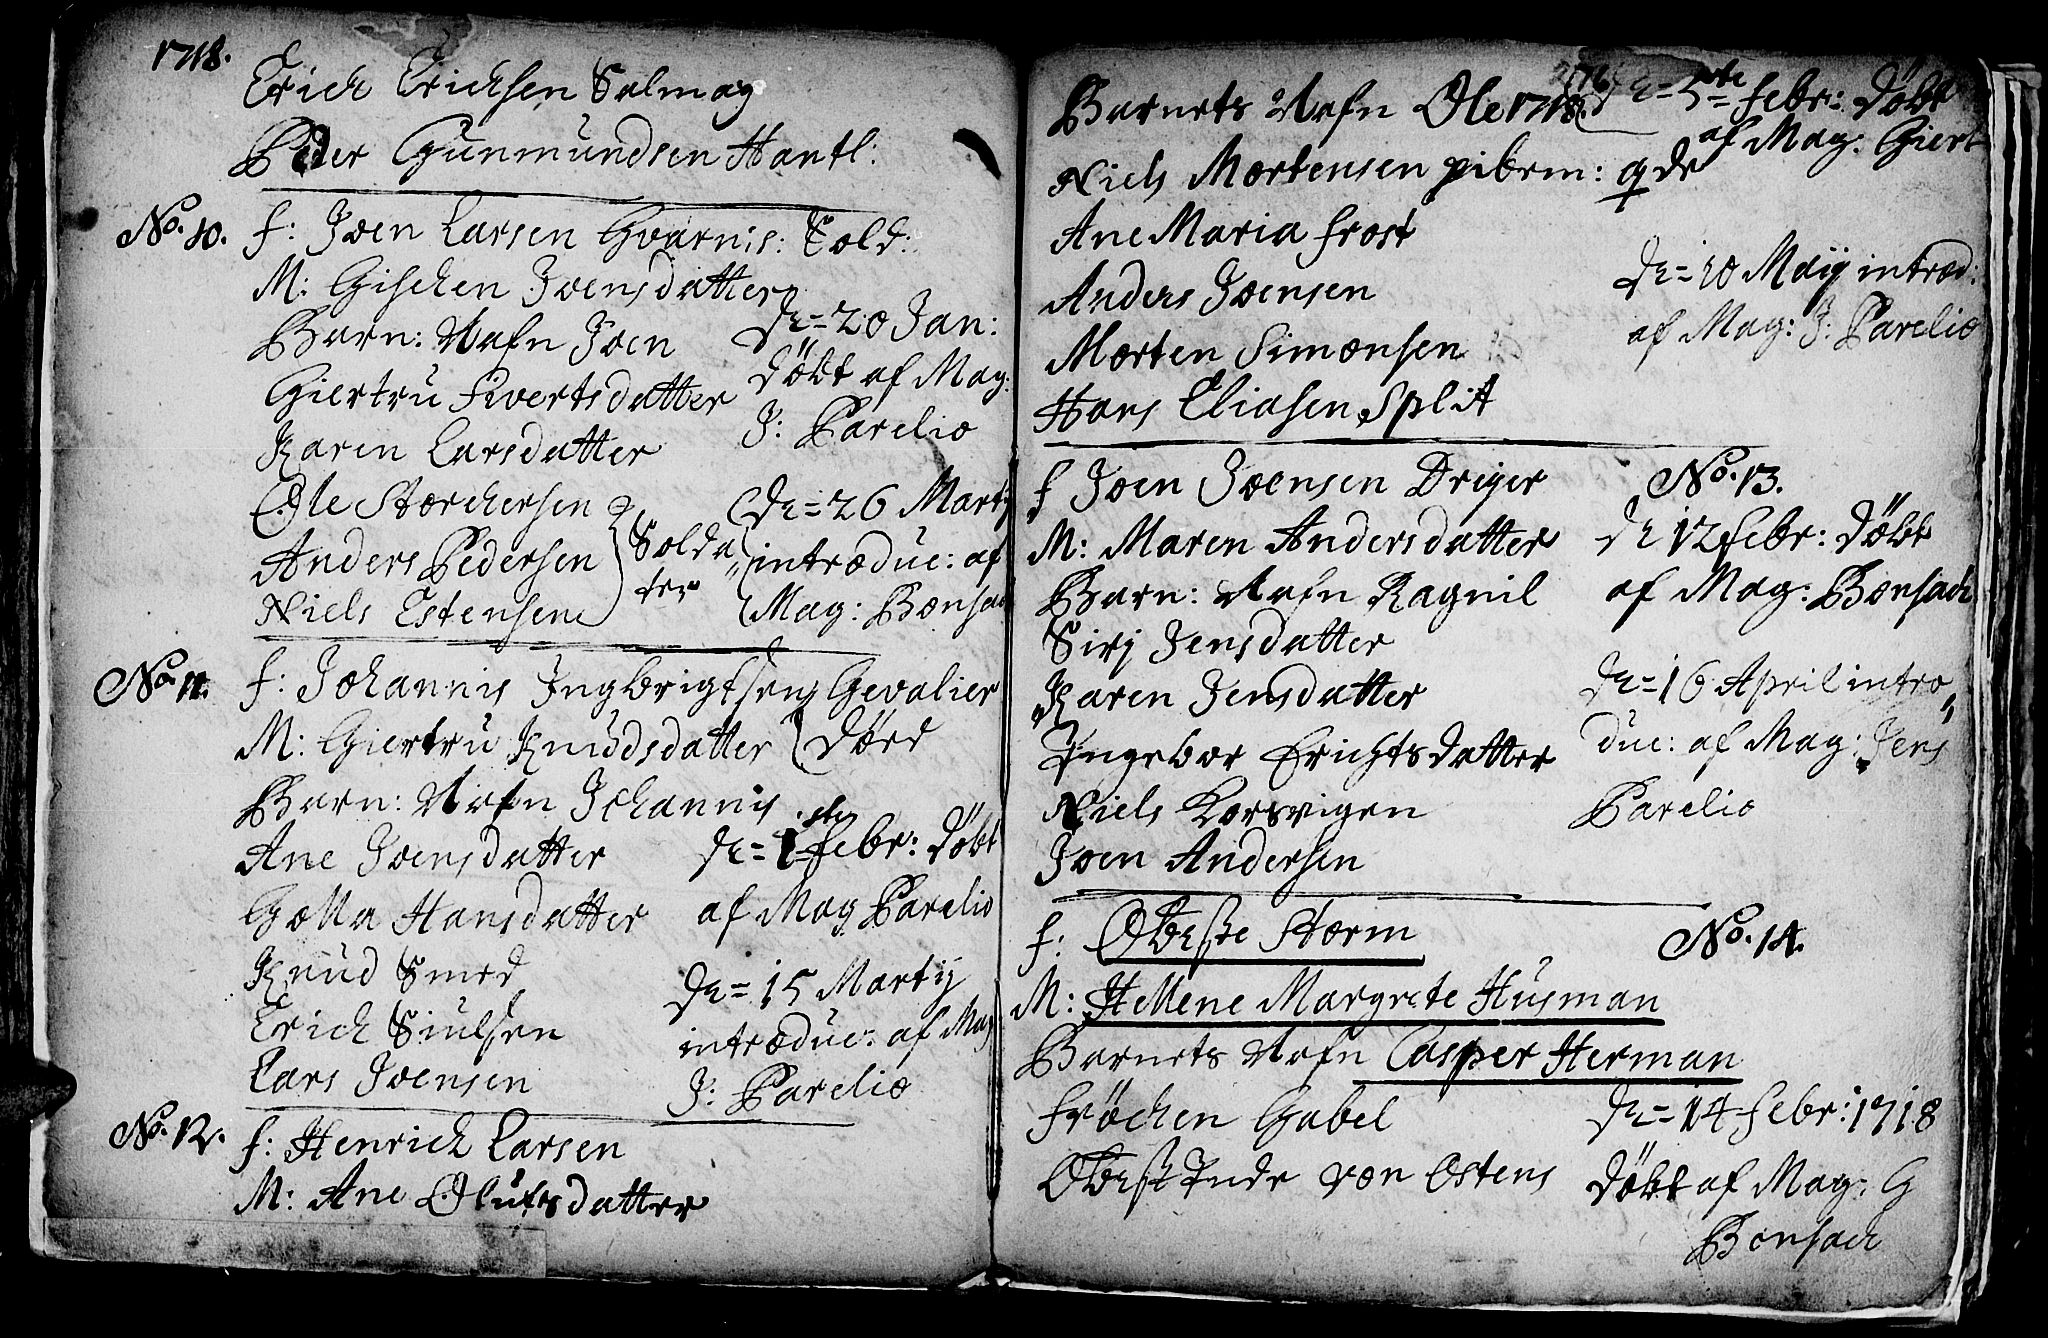 1718.
Erich Erichsen Salmag
Peder Gunmundsen Hantl:
No. 10. f: Joen Larsen Gvarnis: Sold:
M: Gischen Joensdatter
Barn: Nafn Joen
Giertru Sivertsdatter
Karen Larsdatter
Ole Storchersen
Anders Pedersen
Niels Estensen
Solda„
ter
de= 20 Jan:
döbt af Mag:
J: Parelio
de= 26 Martj
introduc: af
Mag: Bonsach
No. 11. f: Johannis Ingbrigtsen Gevalier
M: Giertru Knudsdatter död
Barn: Nafn Johannis
Ane Joensdatter
Golla Hansdatter
Knud Smed
Erich Siulsen
Lars Joensen
de= 1 ste febr: döbt
af Mag Parelio
de= 15 Martij
introduc: af Mag
J: Parelio
No. 12. f: Henrich Larsen
M: Ane Olufsdatter
Barnets Nafn Ole 1718. de= 5te febr: döbt
af Mag: Giert
Niels Mortensen pibem:
Ane Maria frost
Anders Joensen
Morten Simonsen
Hans Eliasen Split
de= 10 Maij introd:
af Mag: J: Parelio
f Joen Joensen Dreyer No. 13.
M: Maren Andersdatter
Barn: Nafn Ragnil
Sirj Jensdatter
Karen Jensdatter
Ingebor Erichtsdatter
Niels Korsvigen
Joen Andersen
de 12 febr: döbt
af Mag: Bonsach
de= 16 April intro„
duc: af Mag: Jens
Parelio
f: Oberste Storm No. 14.
M: Hellene Margrete Husman
Barnets Nafn Casper Herman
fröchen Gabel
Oberst Inde von Ostens
de= 14 febr: 1718
döbt af Mag: G
Bonsach